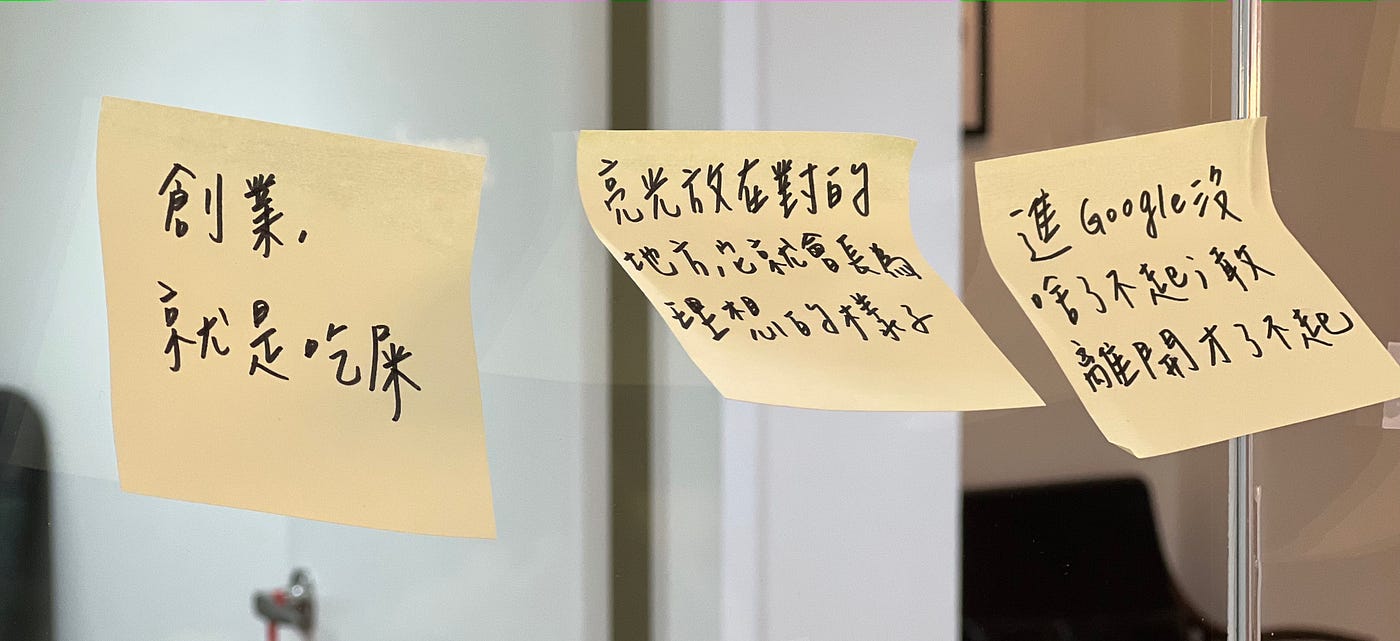 創業,
就是吃屎
亮光放在對的
地方,它就會長為
理想的樣子
進 Google 沒
啥了不起;敢
離開才了不起